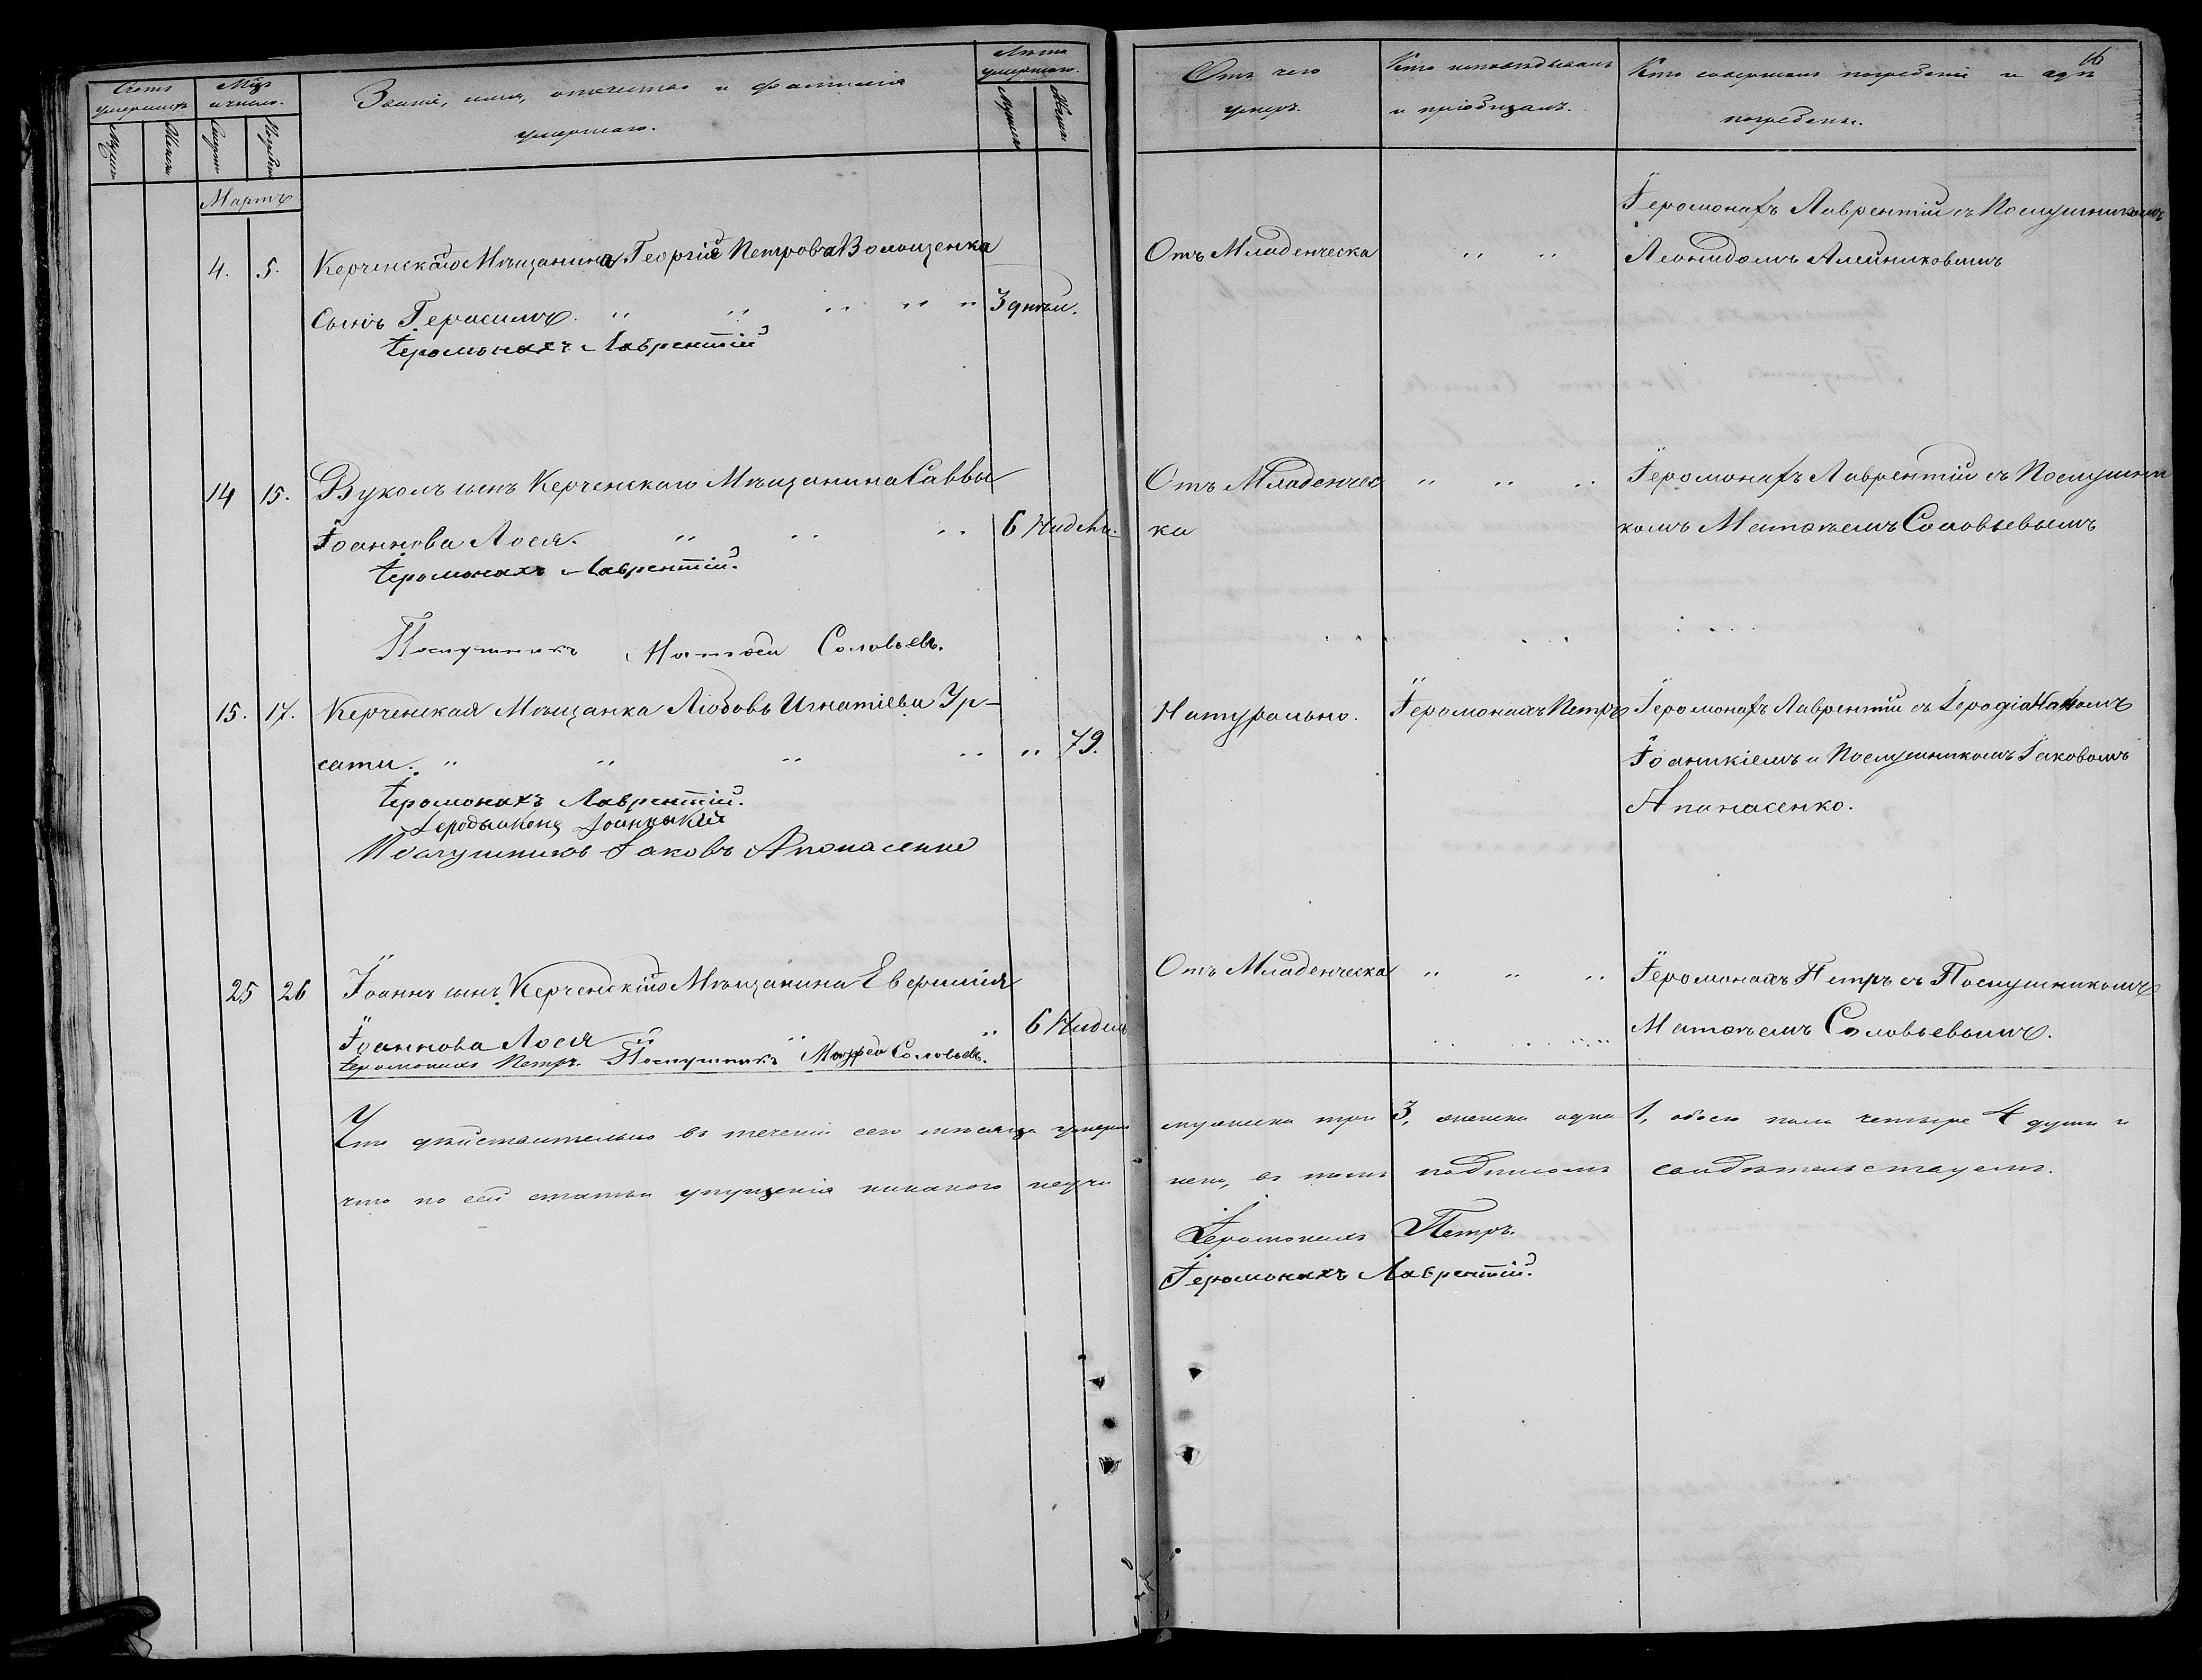 Счетъ умершихъ
Мѣс. и число.
Званіе, имя, отчество и фамилія
умершаго.
Лѣта умершаго.
Отъ чего
умеръ.
Кто исповѣдывалъ
и пріобщалъ.
Кто совершалъ погребеніе и гдѣ
погребены.
16
Мартъ
4. 5. Керченскаго Мѣщанина Георгія Петрова Волощенка
Сынъ Герасимъ. 3 дней.
Іеромонахъ Лаврентій
Отъ Младенческа
Іеромонахъ Лаврентій съ Послушникомъ
Леонидомъ Алейниковымъ
14 15. Вуколъ сынъ Керченскаго Мѣщанина Саввы
Іоаннова Лося. 6 Нидель.
Іеромонахъ Лаврентій.
Послушникъ Матѳей Соловьевъ.
Отъ Младенчес
ка
Іеромонахъ Лаврентій съ Послушни
комъ Матѳѣемъ Соловьевымъ
15. 17. Керченская Мѣщанка Любовь Игнатіева Ур-
сати. 79.
Іеромонахъ Лаврентій.
Іеродьяконъ Іоанныкій
Послушникъ Іаковъ Апонасенко
Натурально.
Іеромонахъ Петръ
Іеромонахъ Лаврентій съ Іеродіакономъ
Іоаникіемъ и Послушникомъ Іаковомъ
Апанасенко.
25 26 Іоаннъ сынъ Керченскаго Мѣщанина Евфимія
Іоаннова Лося 6 Нидель
Іеромонахъ Петръ. Послушникъ Матфей Соловьевъ.
Отъ Младенческа
Іеромонахъ Петръ съ Послушникомъ
Матѳѣемъ Соловьевымъ.
Что дѣйствительно въ теченіи сего мѣсяца умерло мужеска три 3, женска одна 1, обоего пола четыре 4 души и
что по сей статьи упущенія никакого неучи нено, въ томъ подписомъ свидѣтельствуемъ.
Іеромонахъ Петръ.
Іеромонахъ Лаврентій.